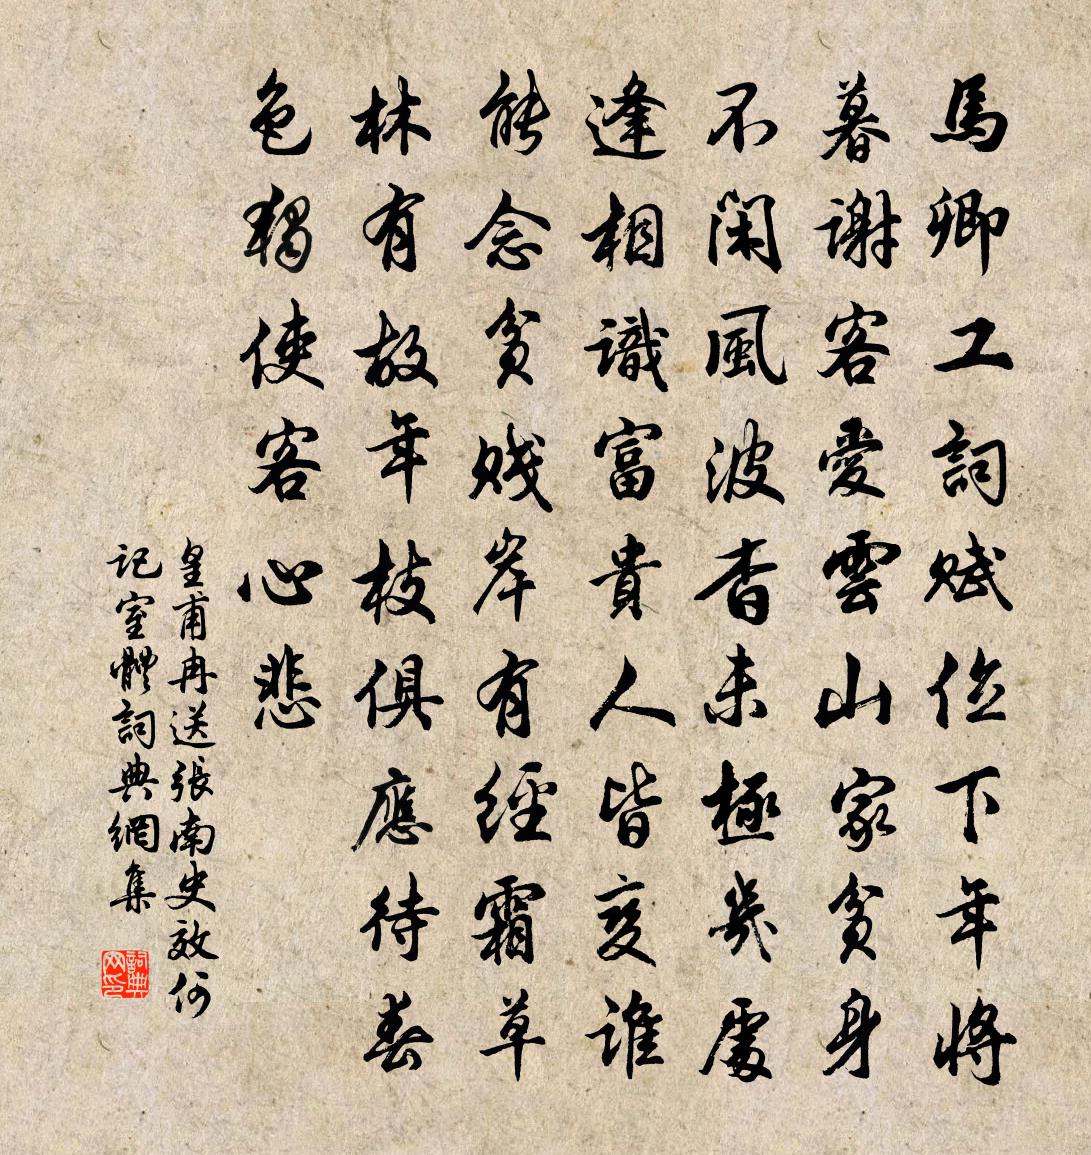 馬卿工詞賦位下年將
暮謝客愛雲山家貧身
不閑風波杳未極幾處
逢相識富貴人皆變誰
能念貧賤岸有經霜草
林有故年枝俱應待春
色獨使客心悲
皇甫冉送張南史效何
記室體詞典網集
詞典網印